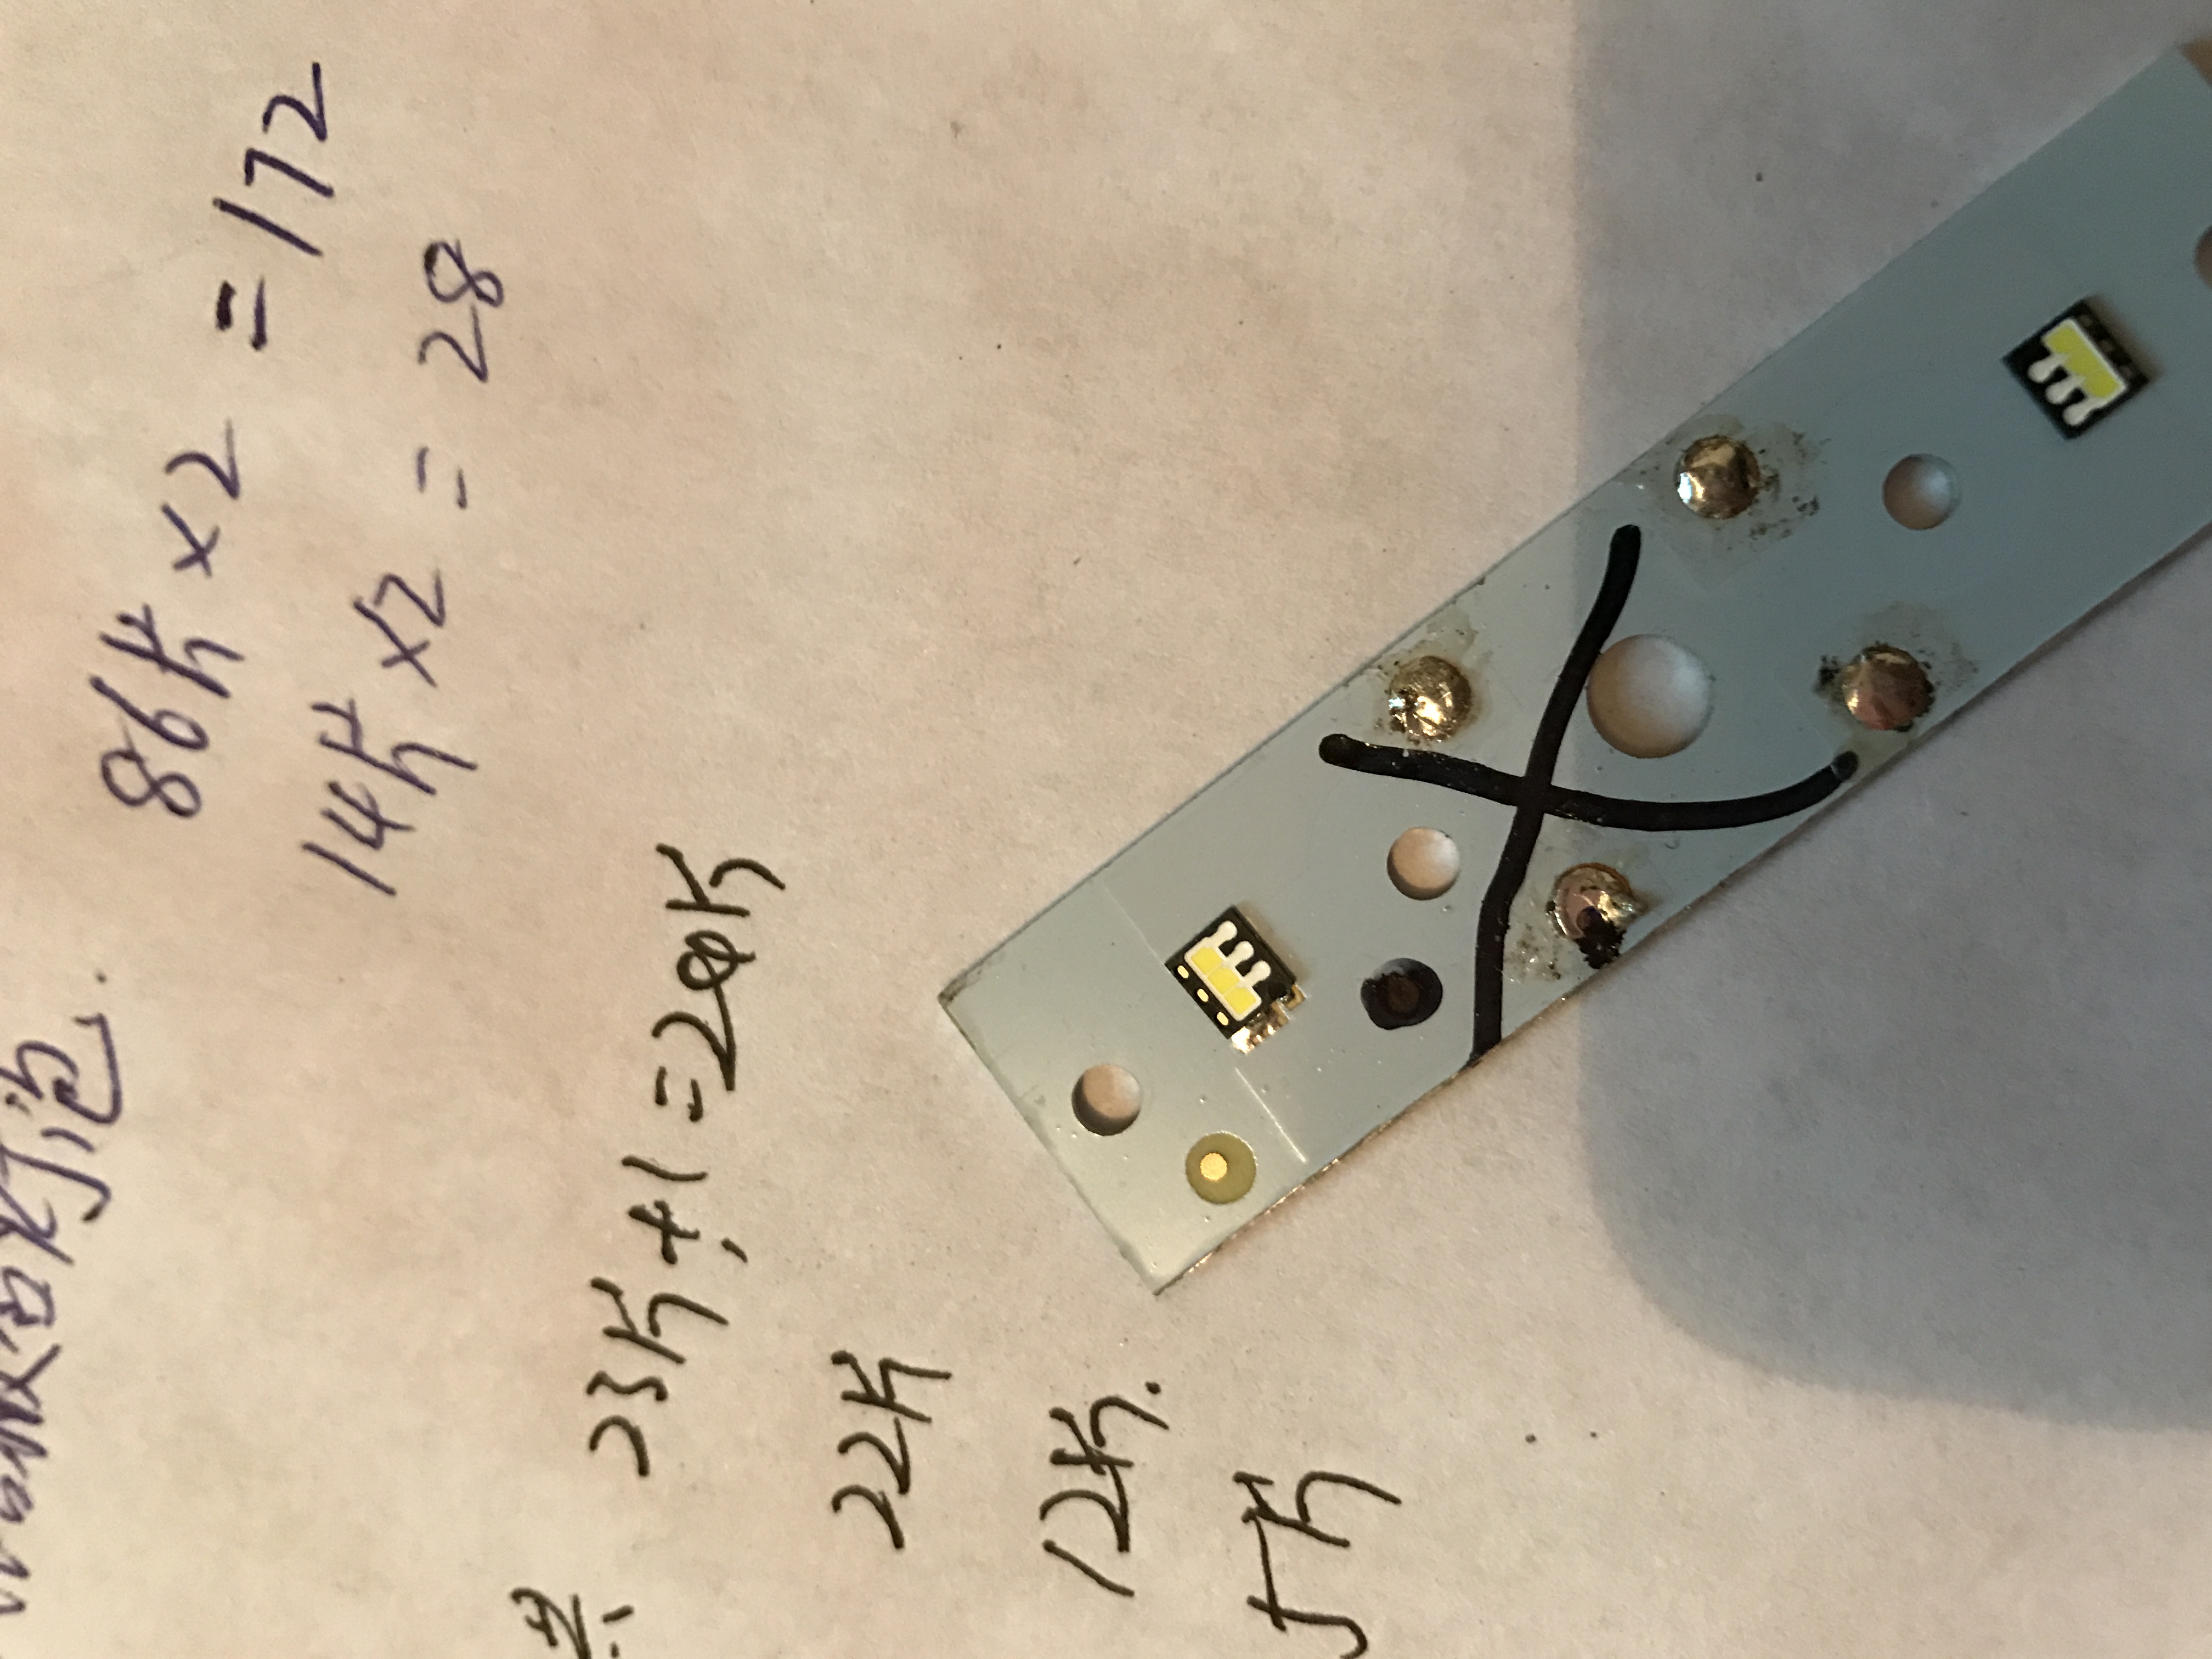 灯泡.
86片×2=172
14片×2=28
23片+1=24片
22片
12片.
5片